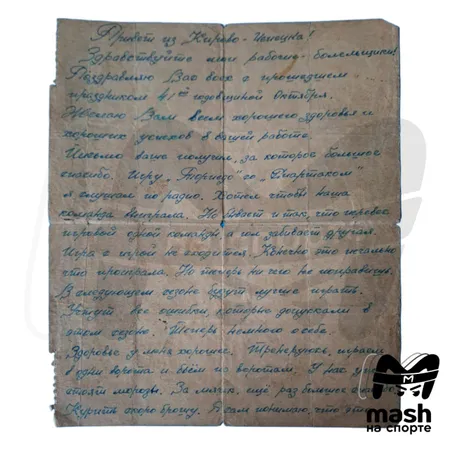 Привет из Кирово-Чепецка!
Здравствуйте мои рабочие-болельщики!
Поздравляю Вас всех с прошедшим
праздником 41ой годовщиной Октября.
Желаю Вам всем хорошего здоровья и
хороших успехов в вашей работе.
Письмо ваше получил, за которое большое
спасибо. Игру „Торпедо" со „Спартаком"
я слушал по радио. Хотел чтобы наша
команда выиграла. Но бывает и так, что игровое
игровой одной команды, а гол забивает другая.
Игра с игрой не сходится. Конечно это печально
что проиграла. Но теперь ни чего не поправишь.
В следующем сезоне будут лучше играть.
Учтут все ошибки, которые допускали в
этом сезоне. Теперь немного о себе.
Здоровье у меня хорошее. Тренируюсь, играем
в одни ворота и бьём по воротам. У нас уже
стоят морозы. За мячик, ещё раз большое
Курить скоро брошу. Я сам понимаю, что это
mash
на спорте